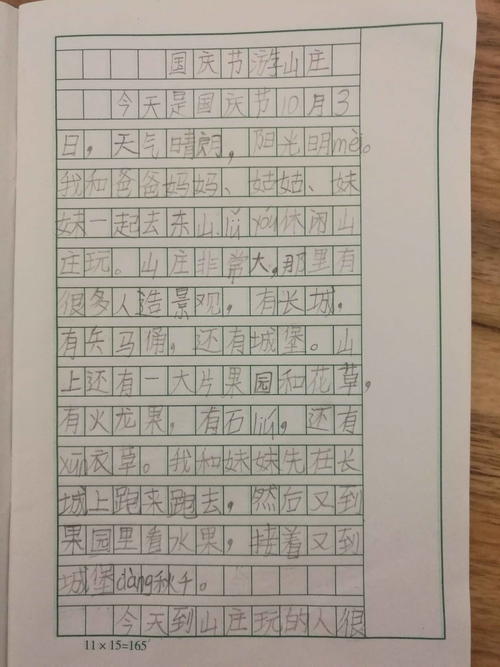 国庆节游山庄
今天是国庆节10月3
日，天气晴朗，阳光明mèi。
我和爸爸妈妈、姑姑、妹
妹一起去东山lǐ yóu休闲山
庄玩。山庄非常大，那里有
很多人造景观，有长城，
有兵马俑，还有城堡。山
上还有一大片果园和花草，
有火龙果，有石liú，还有
xūn衣草。我和妹妹先在长
城上跑来跑去，然后又到
果园里看水果，接着又到
城堡dàng秋千。
今天到山庄玩的人很
11×15=165